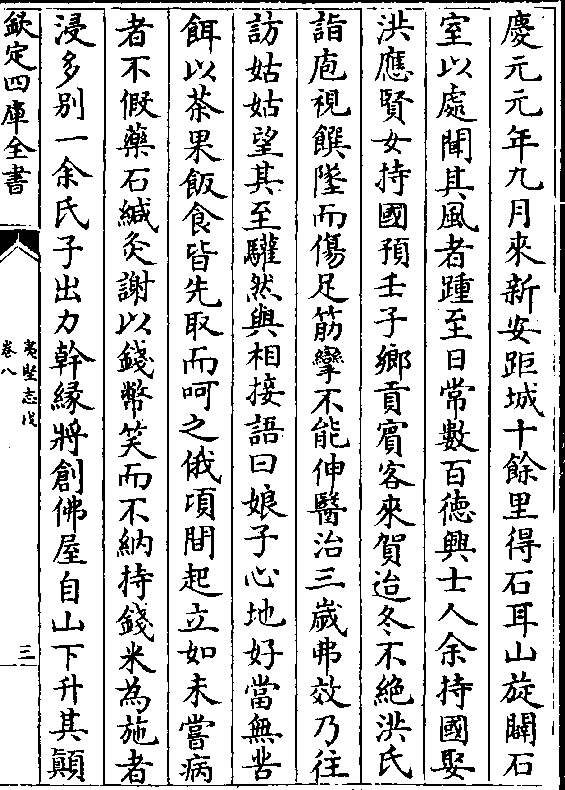 慶元元年九月來新安距城十餘里得石耳山旋闢石
室以處聞其風者踵至日常數百徳興士人余持國娶
洪應賢女持國預壬子鄉貢賓客來賀迨冬不絶洪氏
詣庖視饌墜而傷足筋攣不能伸醫治三歲弗效乃往
訪姑姑望其至驩然與相接語曰娘子心地好當無苦
餌以茶果飯食皆先取而呵之俄頃間起立如未嘗病
者不假藥石鍼灸謝以錢幣笑而不納持錢米為施者
浸多别一余氏子出力幹緣將創佛屋自山下升其顛
欽定四庫全書
夷堅志戊
卷八
三